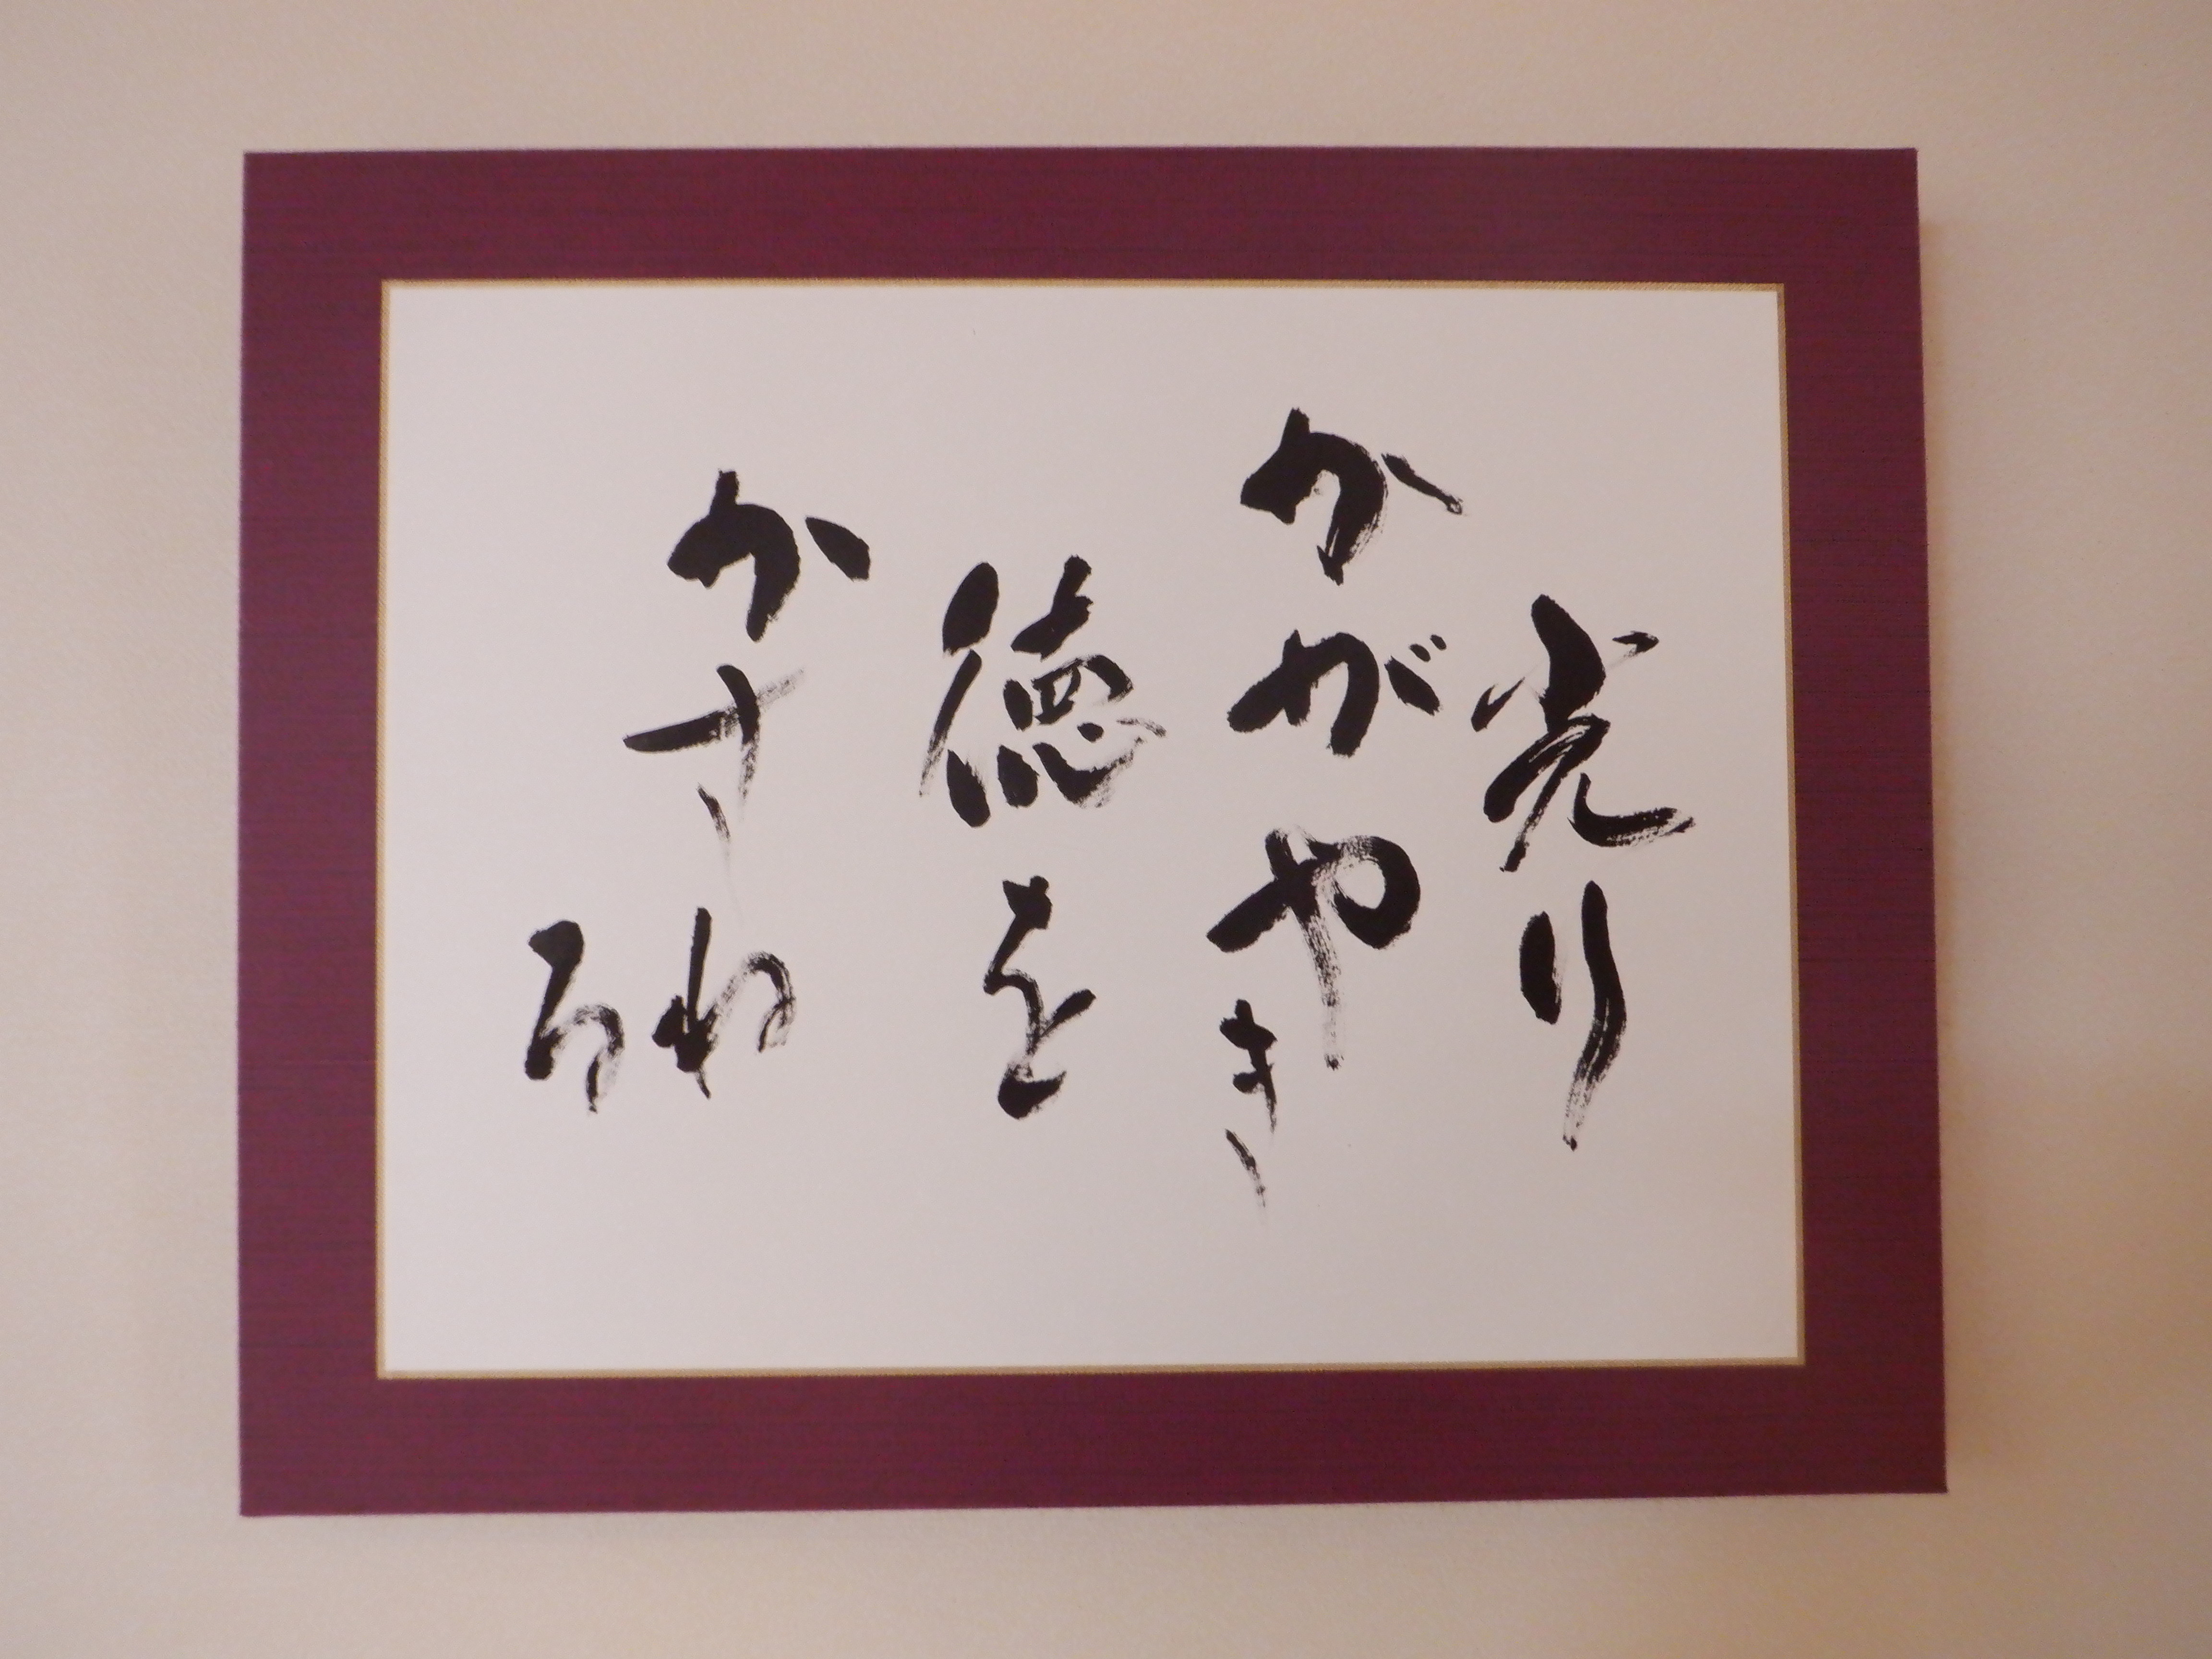 光り
かがやき
徳を
かさねる